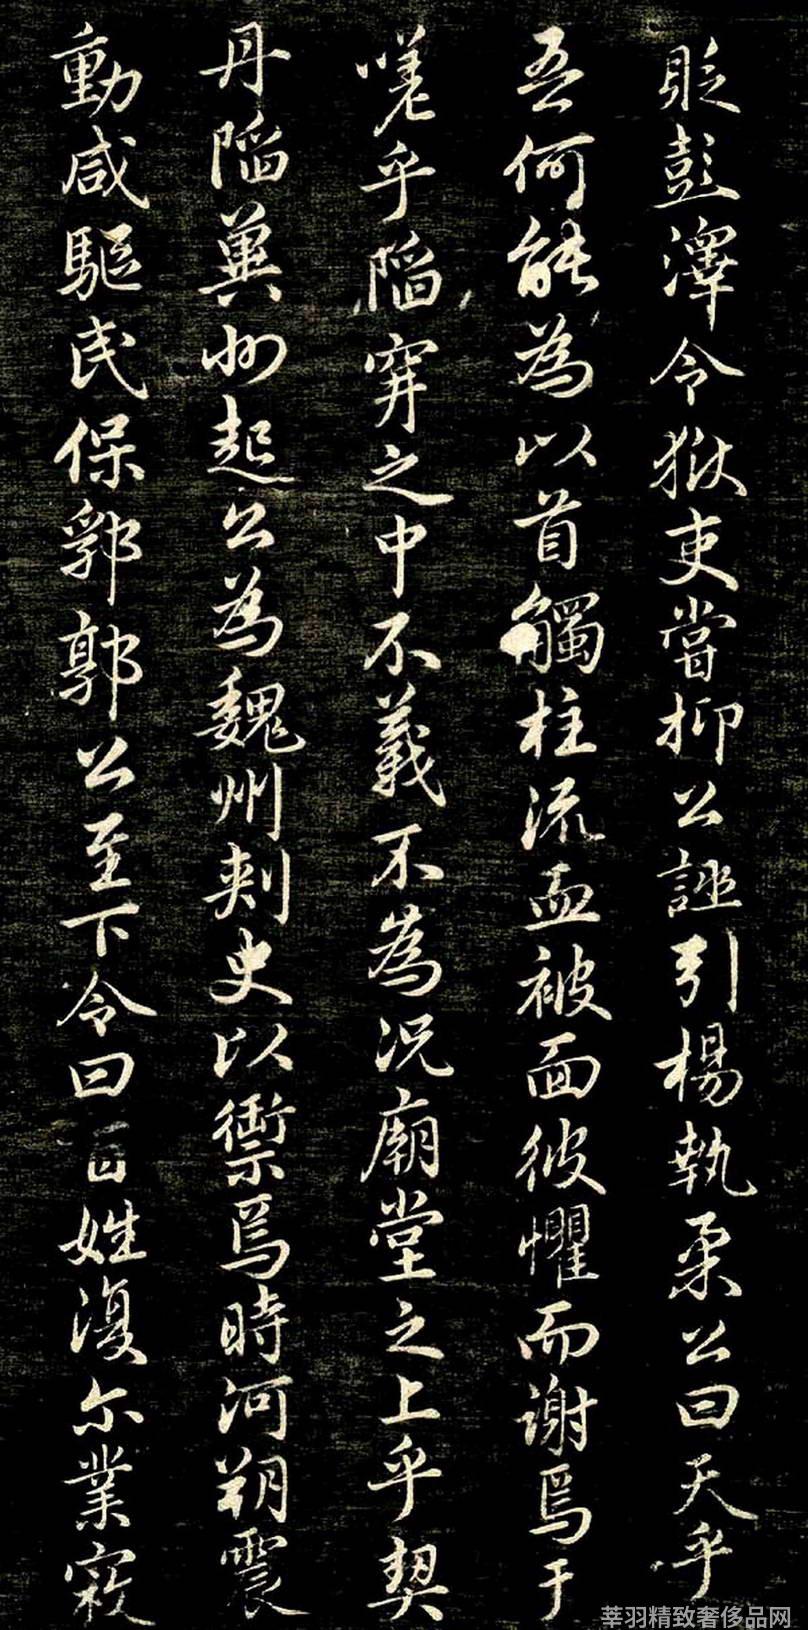 貶彭澤令獄吏嘗抑公誣引楊執柔公曰天乎
吾何能為以首觸柱流血被面彼懼而謝焉于
嗟乎陷穽之中不義不為況廟堂之上乎契
丹陷冀州起公為魏州刺史以禦焉時河朔震
動咸驅民保郛郭公至下令曰百姓復尔業寂
莘羽精致奢侈品网